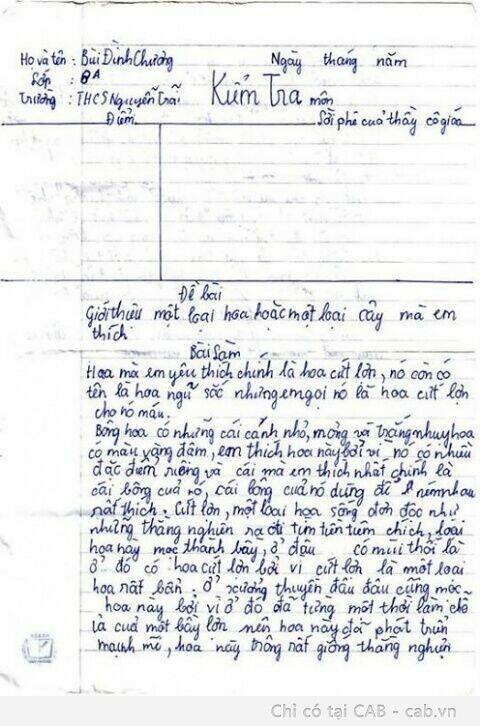 Họ và tên : Bùi Đình Chương Ngày tháng năm
Lớp : 8A
Trường : THCS Nguyễn Trãi Kiểm Tra môn
Điểm Lời phê của thầy cô giáo
Đề bài
Giới thiệu một loại hoa hoặc một loại cây mà em
thích
Bài Làm
Hoa mà em yêu thích chính là hoa cứt lợn, nó còn có
tên là hoa ngũ sắc nhưng em gọi nó là hoa cứt lợn
cho nó máu.
Bông hoa có những cái cánh nhỏ, mỏng và trắng nhuỵ hoa
có màu vàng đậm, em thích hoa này bởi vì nó có nhiều
đặc điểm riêng và cái mà em thích nhất chính là
cái bông của nó, cái bông của nó dùng để ném nhau
rất thích. Cứt lợn, một loài hoa sống đơn độc như
những thằng nghiện ra đồi tìm tiên tiêm chích, loài
hoa này mọc thành bầy, ở đâu có mùi thối là
ở đó có hoa cứt lợn bởi vì cứt lợn là một loài
hoa rất bẩn. Ở xưởng thuyền đâu đâu cũng mọc
hoa này bởi vì ở đó đã từng một thời làm chỗ
ỉa của một bầy lợn nên hoa này đã phát triển
mạnh mẽ, hoa này trông rất giống thằng nghiện
Chỉ có tại CAB - cab.vn